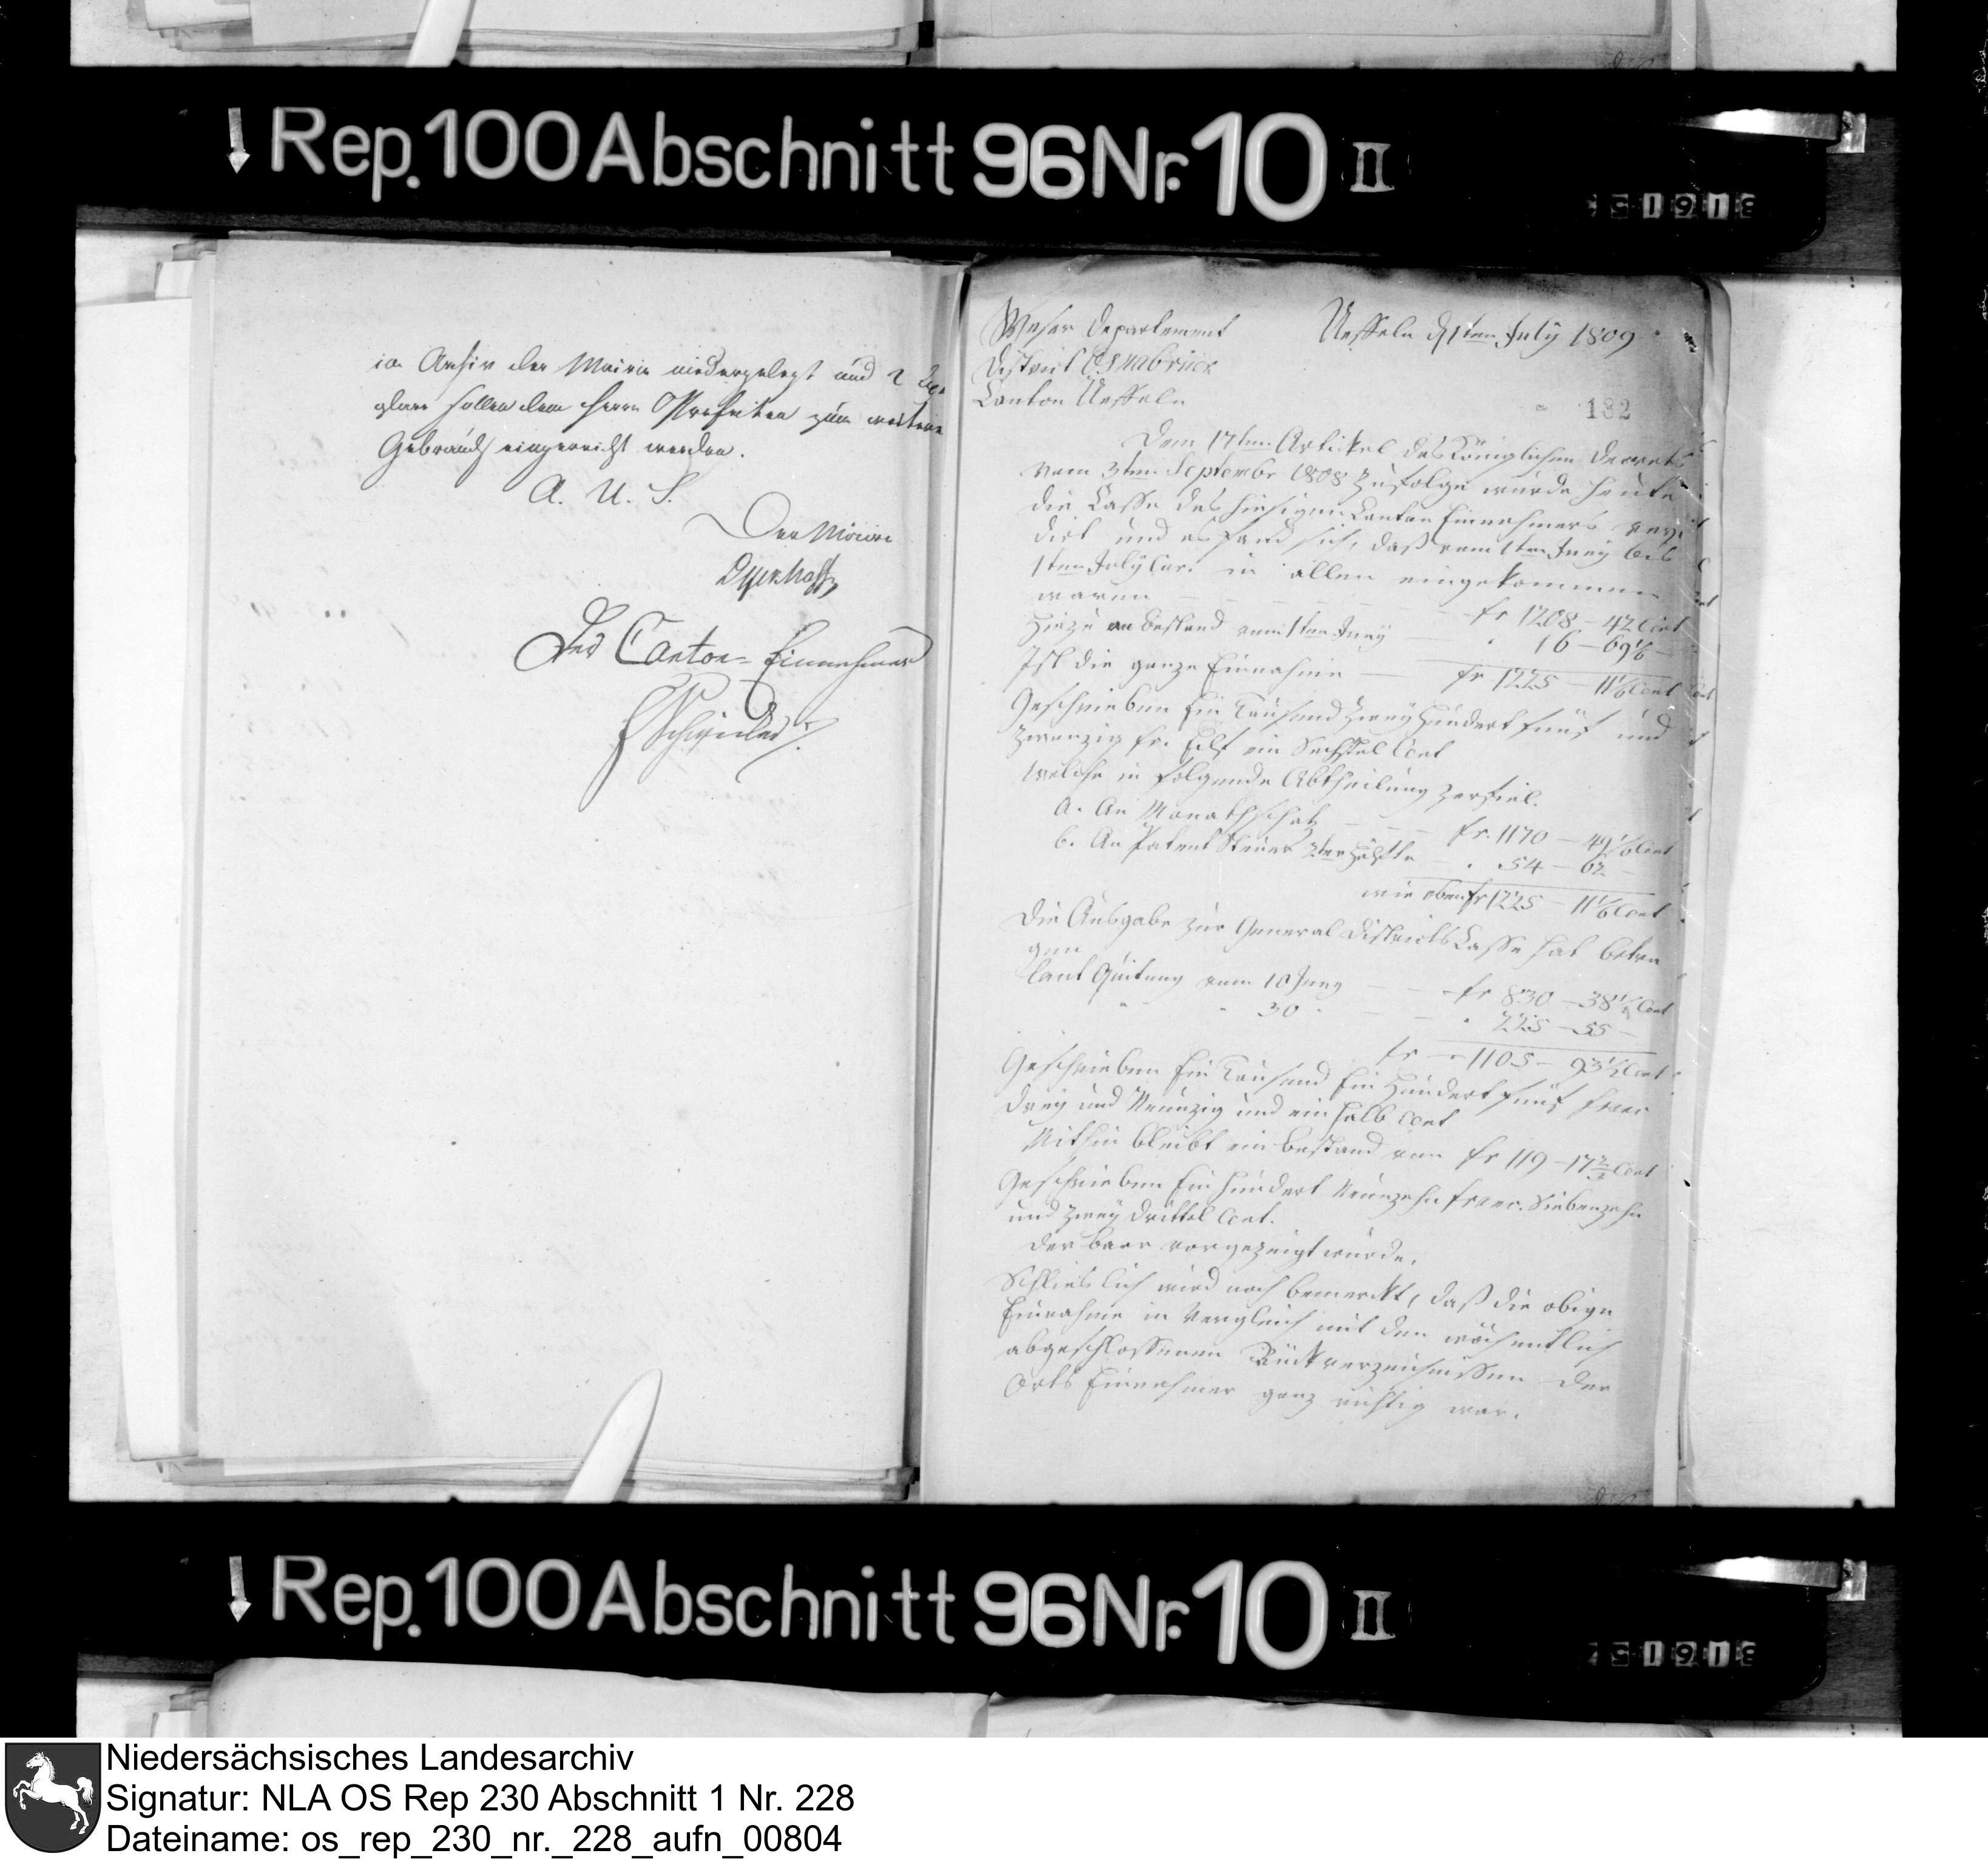 Rep. 100 Abschnitt 96 Nr. 10 II
51918
im Archiv der Mairie niedergelegt und 2 Exem
plare sollen dem Herrn Praefecten zum weitern
Gebrauch eingereicht werden.
A. U. S.
Der Maire
Der Canton-Einnehmer
Weser Departement
Ueffeln d 1ten July 1809
District Osnabrück
Canton Ueffeln
182
Dem 17ten Artikel des Königlichen Decrets
vom 3ten Septembr 1808 zufolge wurde heute
die Casse des hiesigen Canton Einnehmers revi
dirt und es fand sich, daß vom 1ten Juny bis
1ten July cur. in allen eingekommen
waren — fr 1208 – 42 Cent
Hiezu an Bestand vom 1ten Juny — 16 – 69 1/6 —
Ist die ganze Einnahme — fr 1225 – 11 1/6 Cent
Geschrieben Ein Tausend zwey Hundert fünf und
zwanzig fr. Eilf ein Sechstel Cent
welche in folgende Abtheilung zerfiel.
a. An Monathschatz — fr. 1170 – 49 1/6 Cent
b. An Patent Steuer 2ter Hälfte — 54 – 62 —
wie oben fr 1225 – 11 1/6 Cent
Die Ausgabe zur General Districts Casse hat betra
gen
laut Quitung vom 10 Juny — fr 830 – 38 1/2 Cent
" " 30 " — 225 – 55 —
fr — 1105 – 93 1/2 Cent
Geschrieben Ein Tausend Ein Hundert fünf franc
drey und Neunzig und ein halb Cent
Mithin bleibt ein Bestand von fr 119 – 17 2/3 Cent
Geschrieben Ein Hundert Neunzehn franc. Siebenzehn
und zwey Drittel Cent.
der baar vorgezeigt wurde.
Schlieslich wird noch bemerkt, daß die obige
Einnahme in Vergleich mit den wöchentlich
abgeschlossenen Rückverzeichnissen der
Orts Einnehmer ganz richtig war.
Rep. 100 Abschnitt 96 Nr. 10 II
51918
Niedersächsisches Landesarchiv
Signatur: NLA OS Rep 230 Abschnitt 1 Nr. 228
Dateiname: os_rep_230_nr._228_aufn_00804